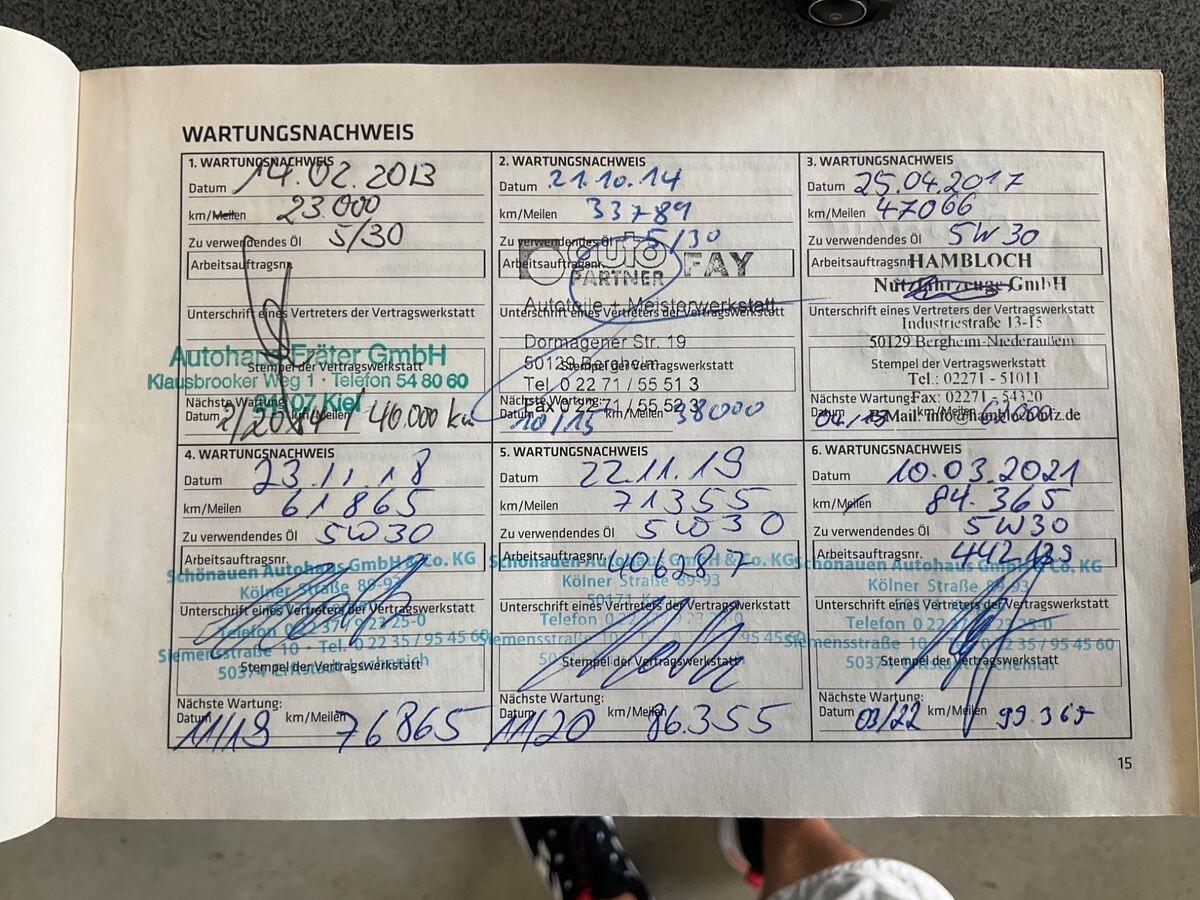 WARTUNGSNACHWEIS
1. WARTUNGSNACHWEIS
Datum 14.02.2013
km/Meilen 23.000
Zu verwendendes Öl 5/30
Arbeitsauftragsnr.
Unterschrift eines Vertreters der Vertragswerkstatt
Autohaus Fräter GmbH
Stempel der Vertragswerkstatt
Klausbrooker Weg 1 · Telefon 54 80 60
07 Kiel
Nächste Wartung:
Datum km/Meilen 40.000 km
2. WARTUNGSNACHWEIS
Datum 21.10.14
km/Meilen 33789
Zu verwendendes Öl 5/30
Arbeitsauftragsnr.
auto PARTNER FAY
Autoteile + Meisterwerkstatt
Unterschrift eines Vertreters der Vertragswerkstatt
Dormagener Str. 19
50129 Bergheim
Stempel der Vertragswerkstatt
Tel. 0 22 71 / 55 51 3
Fax 0 22 71 / 55 52 3
Nächste Wartung:
Datum 10/15 km/Meilen 38000
3. WARTUNGSNACHWEIS
Datum 25.04.2017
km/Meilen 47066
Zu verwendendes Öl 5W30
Arbeitsauftragsnr.
HAMBLOCH
Nutzfahrzeuge GmbH
Unterschrift eines Vertreters der Vertragswerkstatt
Industriestraße 13-15
50129 Bergheim-Niederaußem
Stempel der Vertragswerkstatt
Tel.: 02271 - 51011
Fax: 02271 - 54320
Nächste Wartung:
Datum km/Meilen
4. WARTUNGSNACHWEIS
Datum 23.11.18
km/Meilen 61865
Zu verwendendes Öl 5W30
Arbeitsauftragsnr.
Schönauen Autohaus GmbH & Co. KG
Kölner Straße 89-93
Unterschrift eines Vertreters der Vertragswerkstatt
Telefon 0 22 37 / 9 23 25-0
Siemensstraße 10 · Tel. 0 22 35 / 95 45 60
Stempel der Vertragswerkstatt
50374
Nächste Wartung:
Datum 11/19 km/Meilen 76865
5. WARTUNGSNACHWEIS
Datum 22.11.19
km/Meilen 71355
Zu verwendendes Öl 5W30
Arbeitsauftragsnr. 406287
Schönauen Autohaus GmbH & Co. KG
Kölner Straße 89-93
50171
Unterschrift eines Vertreters der Vertragswerkstatt
Telefon
Siemensstraße 95 45 60
Stempel der Vertragswerkstatt
Nächste Wartung:
Datum 11/20 km/Meilen 86.355
6. WARTUNGSNACHWEIS
Datum 10.03.2021
km/Meilen 84.365
Zu verwendendes Öl 5W30
Arbeitsauftragsnr. 442139
Schönauen Autohaus GmbH & Co. KG
Kölner Straße 89-93
Unterschrift eines Vertreters der Vertragswerkstatt
Telefon 0 22
Siemensstraße 10 0 22 35 / 95 45 60
Stempel der Vertragswerkstatt
Nächste Wartung:
Datum 03/22 km/Meilen 99.365
15